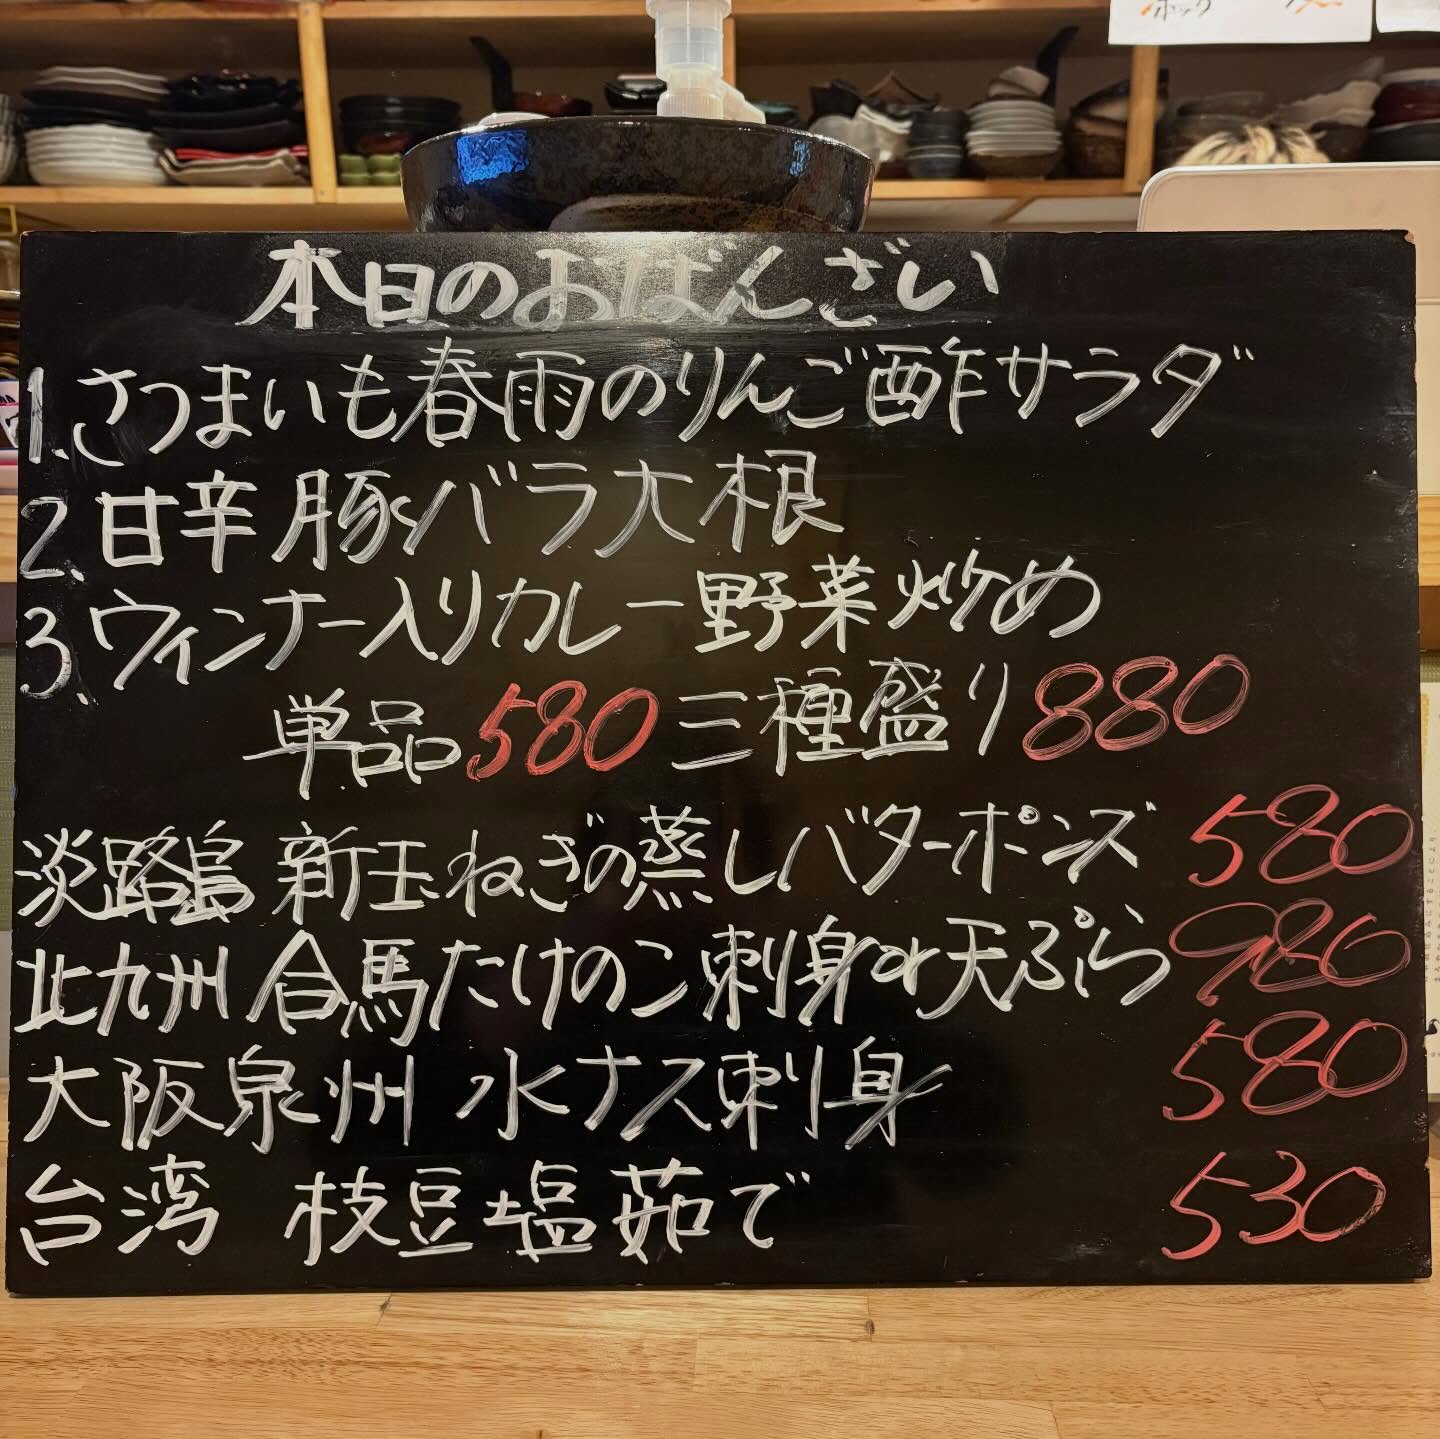 本日のおばんざい
1.さつまいも春雨のりんご酢サラダ
2.甘辛豚バラ大根
3.ウィンナー入りカレー野菜炒め
単品580 三種盛り880
淡路島 新玉ねぎの蒸しバターポンズ 580
北九州 合馬たけのこ刺身or天ぷら 980
大阪泉州 水ナス刺身 580
台湾 枝豆塩茹で 530